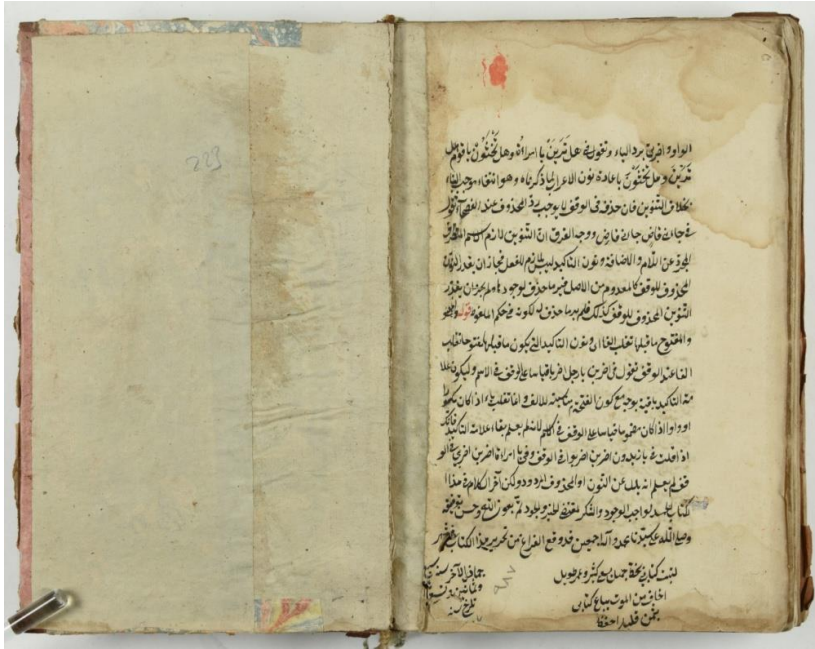 223
الواو و اضربى برد الياء وتقول فى هل تَرَيِنَّ يا امرأة وهل تَخْشَوُنَّ يا قوم هل
ترين وهل تخشون باعادة نون الاعراب لما ذكرناه وهو انتفاء موجب
بخلاف التنوين فان حذفه فى الوقف لا يوجب رد المحذوف عند الفصحاء تقول
فى جاءنى قاض جاءنى قاض ووجه الفرق ان التنوين لازم للاسم
المجرد عن اللام والاضافة ونون التاكيد ليست بلازم للفعل فجاز ان يقدر النون
المحذوف للوقف كالمعدوم من الاصل فيرد ما حذف لوجودها ولم يجز ان يقدر
التنوين المحذوف للوقف كذلك فلم يرد ما حذف له لكونه فى حكم الملفوظ قوله
والمفتوح ما قبلها تقلب الفا اى ونون التاكيد التى يكون ما قبلها مفتوحا تقلب
الفا عند الوقف تقول فى اضربن يا رجل اضربا قياسا على الوقف فى الاسم وليكون علا
مة التاكيد باقية بوجه مع كون الفتحة مناسبة للالف وانما تقلب ياء اذا كان مكسورا
او واوا اذا كان مضموما قياسا على الوقف فى كلم لانه لم يعلم بقاء علامة التاكيد فانك
اذا قلت فى يا زيدون اضربن اضربوا فى الوقف وفى يا امراة اضربن اضربى فى الو
قف لم يعلم انه بدل عن النون او المحذوف المردود وليكن آخر الكلام فى هذا ا
لكتاب الحمد لواجب الوجود والشكر لمفيض الخير والجود تم بعون الله وحسن توفيقه
وصلى الله على سيدنا محمد وآله اجمعين قد وقع الفراغ من تحرير هذا الكتاب
كتبت كتابى
اخاف من الموت يباع كتابى
بثمن قليل
جمادى الآخر سنة
٩٨٧